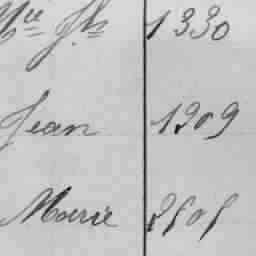 Mie Jh 1330
Jean 1209
Marie 2505